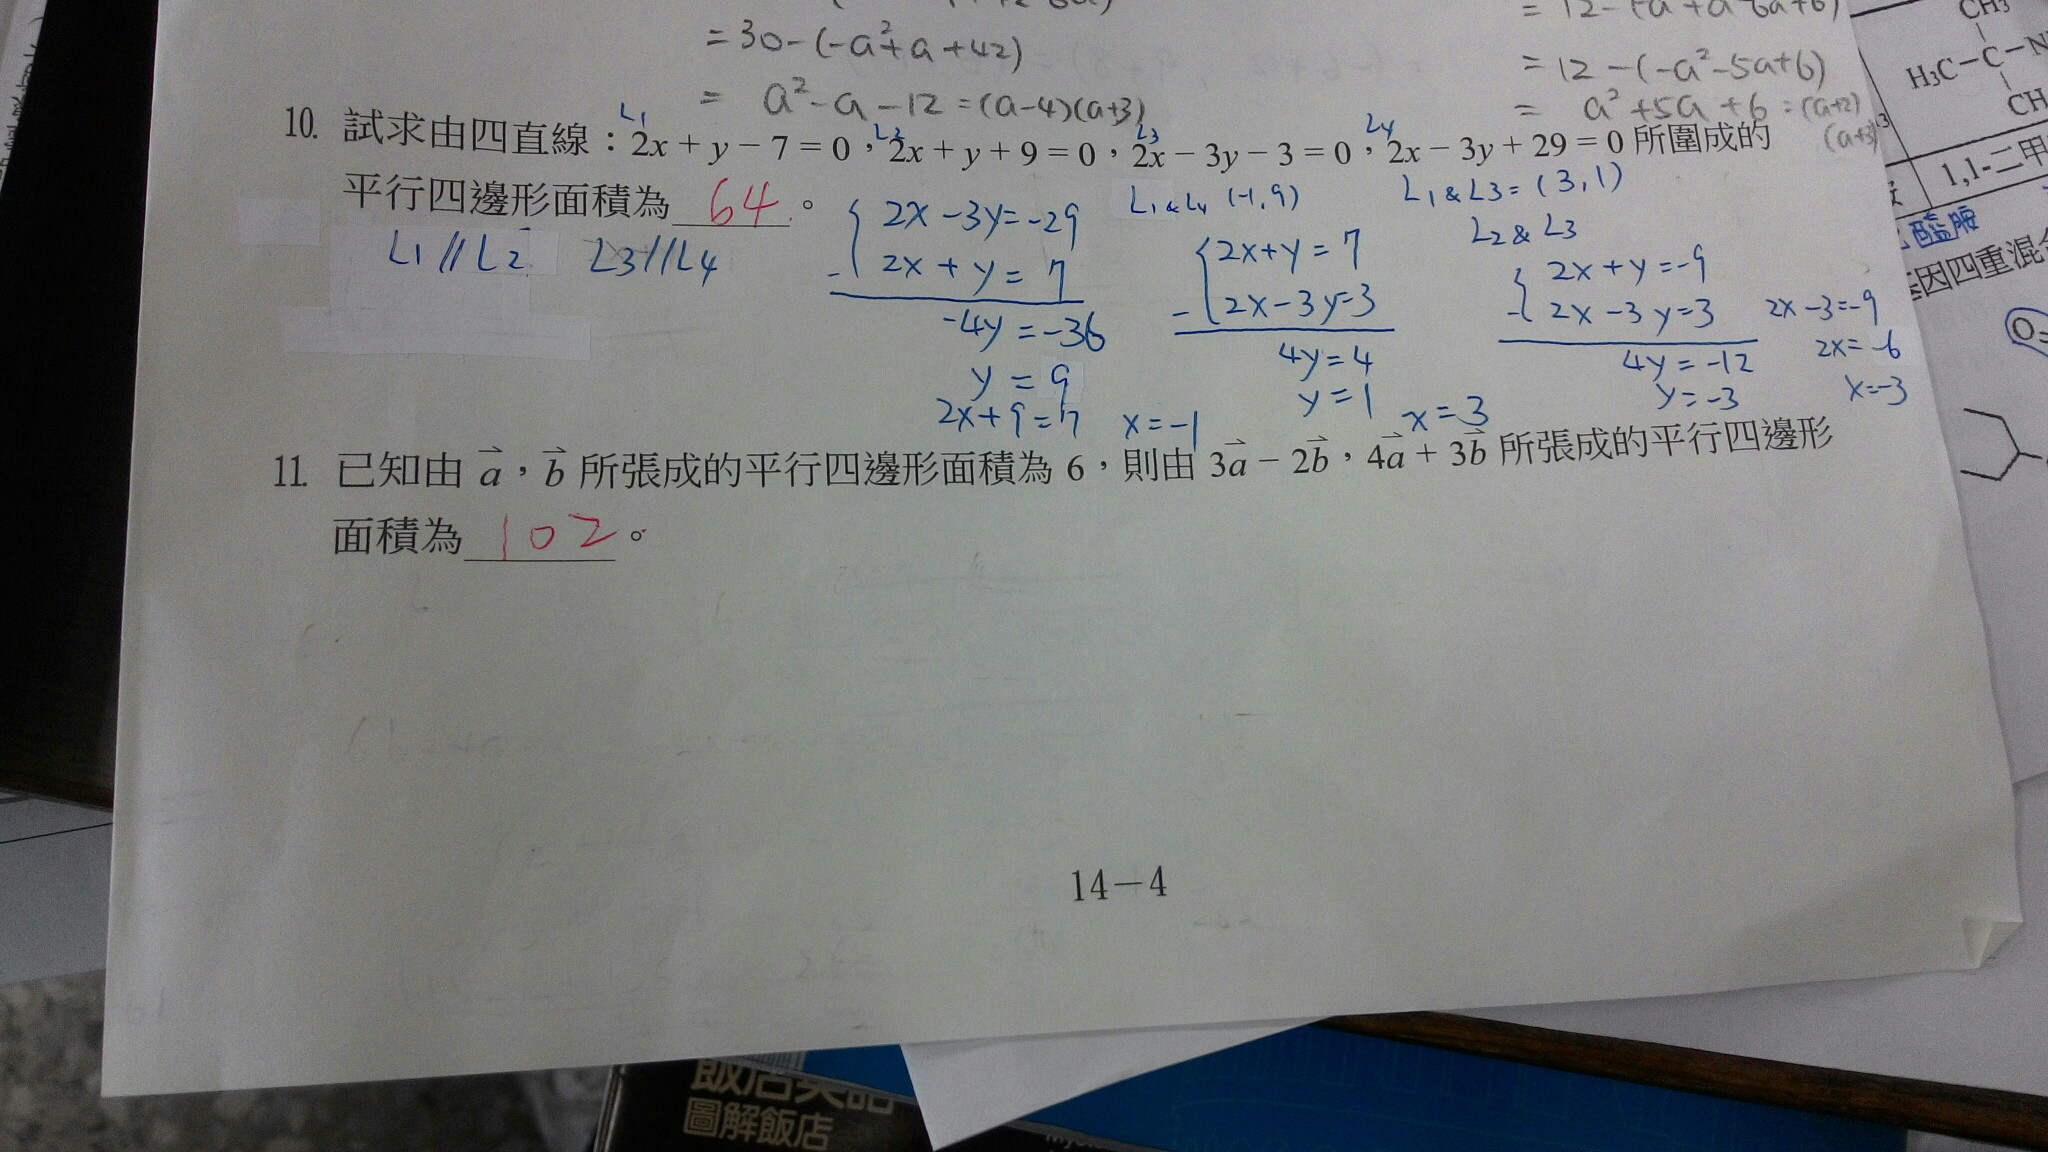 =30-(-a²+a+42)
= a²-a-12=(a-4)(a+3)
=12-(-a²-5a+6)
= a²+5a+6=(a+2)
(a+3)
L1 L2 L3 L4
10. 試求由四直線：2x + y − 7 = 0，2x + y + 9 = 0，2x − 3y − 3 = 0，2x − 3y + 29 = 0 所圍成的
平行四邊形面積為 64 。
L1//L2 L3//L4
2x-3y=-29
- 2x+y=7
-4y=-36
y=9
2x+9=7 x=-1
L1&L4 (-1,9)
2x+y=7
- 2x-3y=3
4y=4
y=1
x=3
L1&L3=(3,1)
L2&L3
2x+y=-9
- 2x-3y=3
4y=-12
y=-3
2x-3=-9
2x=-6
x=-3
11. 已知由 a，b 所張成的平行四邊形面積為 6，則由 3a − 2b，4a + 3b 所張成的平行四邊形
面積為 102 。
14－4
CH3
H3C－C－N
CH
1,1-二甲
醯胺
因四重混
O=
圖解飯店